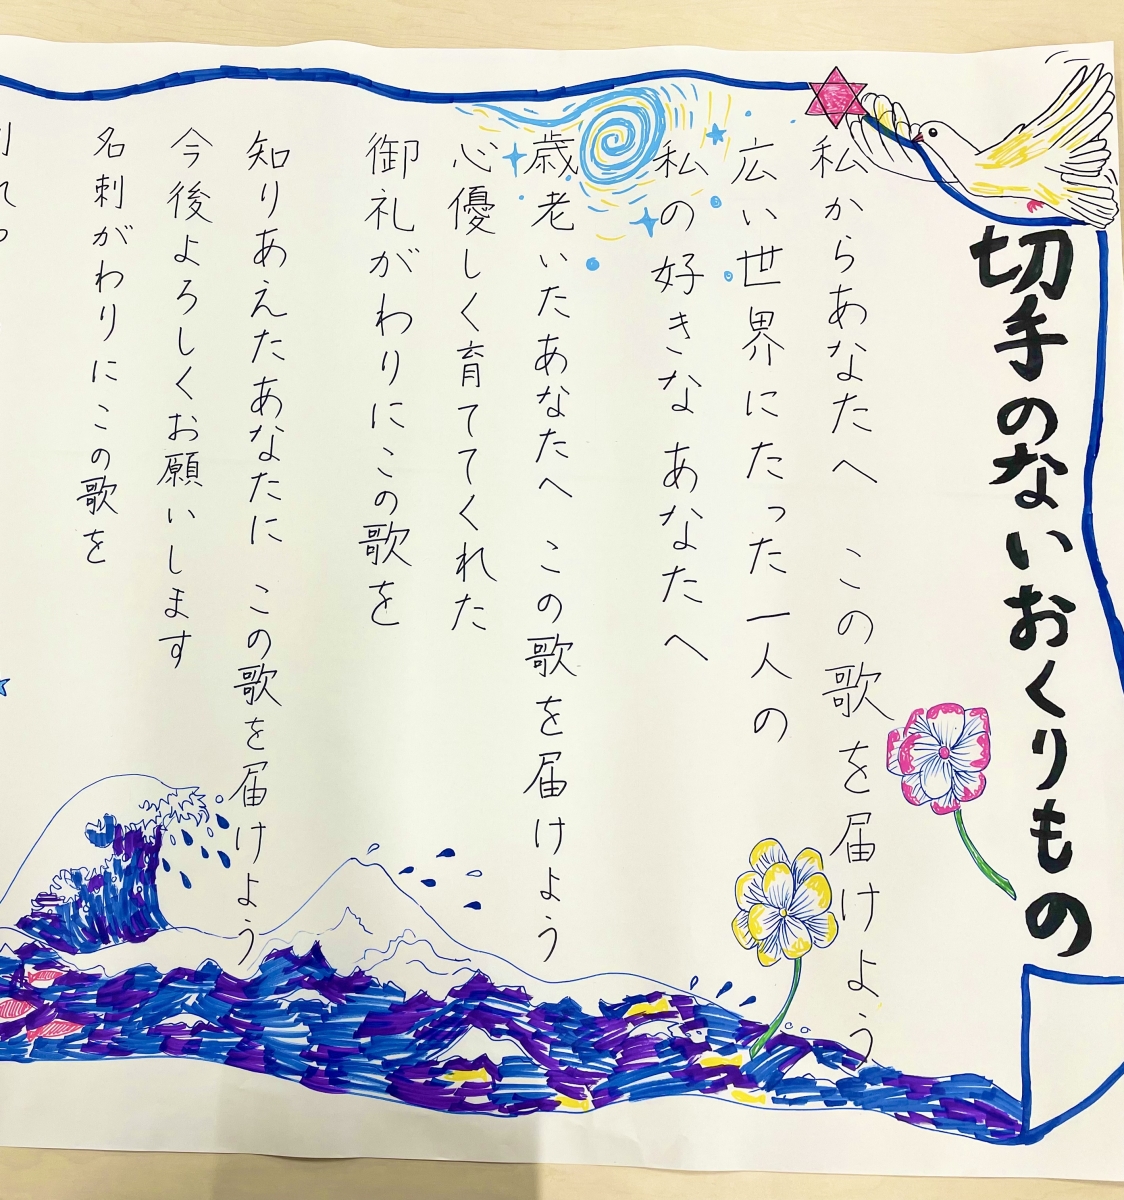 切手のないおくりもの
私からあなたへ この歌を届けよう
広い世界にたった一人の
私の好きなあなたへ
歳老いたあなたへ この歌を届けよう
心優しく育ててくれた
御礼がわりにこの歌を
知りあえたあなたに この歌を届けよう
今後よろしくお願いします
名刺がわりにこの歌を